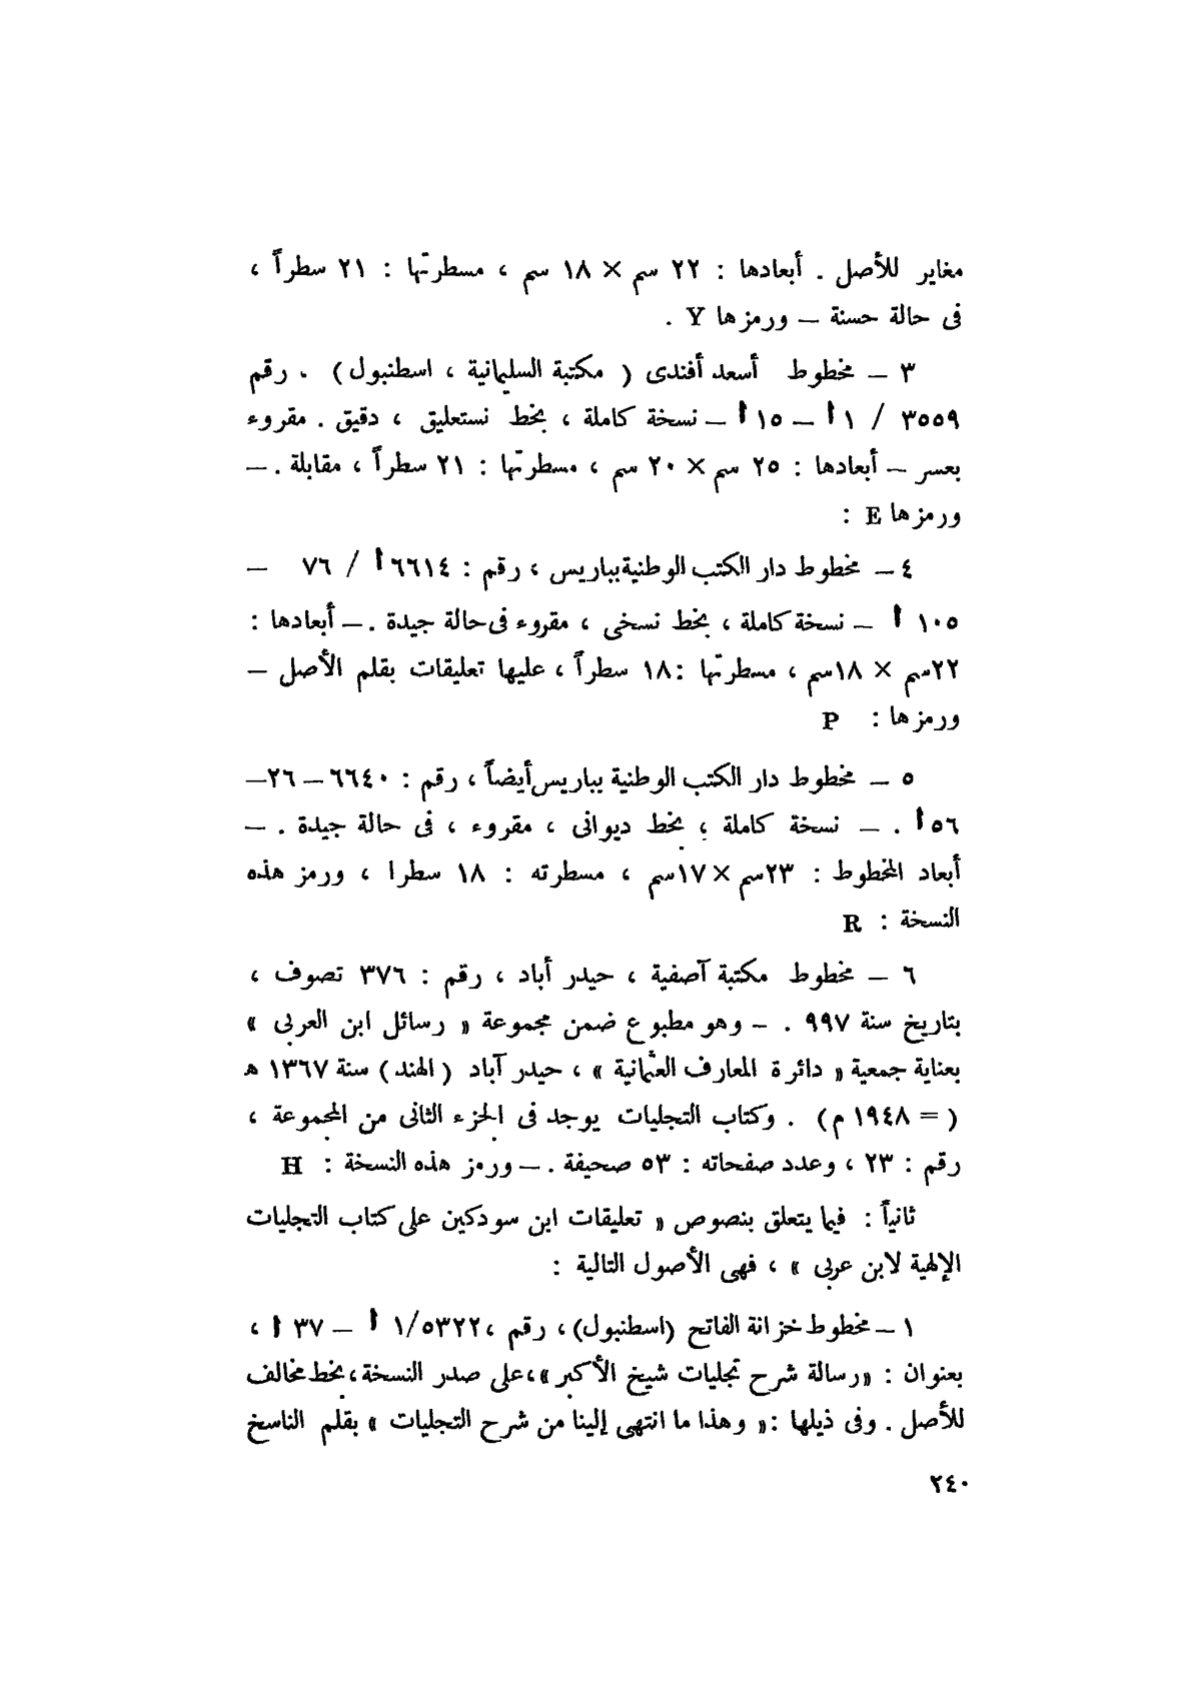 مغاير للأصل . أبعادها : ٢٢ سم × ١٨ سم ، مسطرتها : ٢١ سطراً ،
فى حالة حسنة – ورمزها Y .
٣ – مخطوط أسعد أفندى ( مكتبة السليمانية ، اسطنبول ) . رقم
٣٥٥٩ / ١ أ – ١٥ أ – نسخة كاملة ، بخط نستعليق ، دقيق . مقروء
بعسر – أبعادها : ٢٥ سم × ٢٠ سم ، مسطرتها : ٢١ سطراً ، مقابلة . –
ورمزها E :
٤ – مخطوط دار الكتب الوطنية بباريس ، رقم : ٦٦١٤ أ / ٧٦ –
١٠٥ أ – نسخة كاملة ، بخط نسخى ، مقروء فى حالة جيدة . – أبعادها :
٢٢سم × ١٨سم ، مسطرتها : ١٨ سطراً ، عليها تعليقات بقلم الأصل –
ورمزها : P
٥ – مخطوط دار الكتب الوطنية بباريس أيضاً ، رقم : ٦٦٤٠ – ٢٦–
٥٦ أ . – نسخة كاملة ، بخط ديوانى ، مقروء ، فى حالة جيدة . –
أبعاد المخطوط : ٢٣سم × ١٧سم ، مسطرته : ١٨ سطرا ، ورمز هذه
النسخة : R
٦ – مخطوط مكتبة آصفية ، حيدر أباد ، رقم : ٣٧٦ تصوف ،
بتاريخ سنة ٩٩٧ . – وهو مطبوع ضمن مجموعة « رسائل ابن العربى »
بعناية جمعية « دائرة المعارف العثمانية » ، حيدر آباد ( الهند ) سنة ١٣٦٧ هـ
( = ١٩٤٨ م ) . وكتاب التجليات يوجد فى الجزء الثانى من المجموعة ،
رقم : ٢٣ ، وعدد صفحاته : ٥٣ صحيفة . – ورمز هذه النسخة : H
ثانياً : فيما يتعلق بنصوص « تعليقات ابن سودكين على كتاب التجليات
الإلهية لابن عربى » ، فهى الأصول التالية :
١ – مخطوط خزانة الفاتح (اسطنبول) ، رقم ، ١/٥٣٢٢ أ – ٣٧ أ ،
بعنوان : «رسالة شرح تجليات شيخ الأكبر» ، على صدر النسخة ، بخط مخالف
للأصل . وفى ذيلها : « وهذا ما انتهى إلينا من شرح التجليات » بقلم الناسخ
٢٤٠